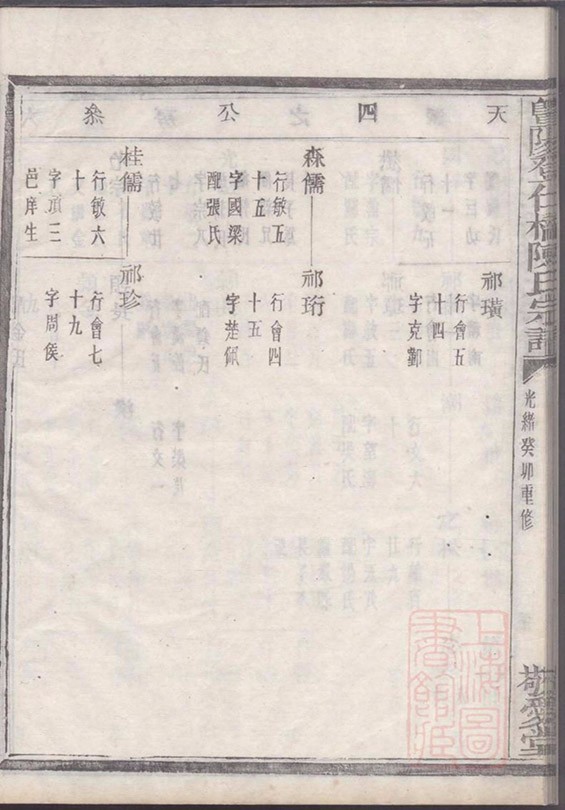 天四公叅
祁璜
行會五
十四
字克酇
森儒
行敏五
十五
字國梁
配張氏
祁珩
行會四
十五
字楚佩
桂儒
行敏六
十六
字承三
邑庠生
祁珍
行會七
十九
字周侯
陳氏宗譜
光緒癸卯重修
上海圖書館藏